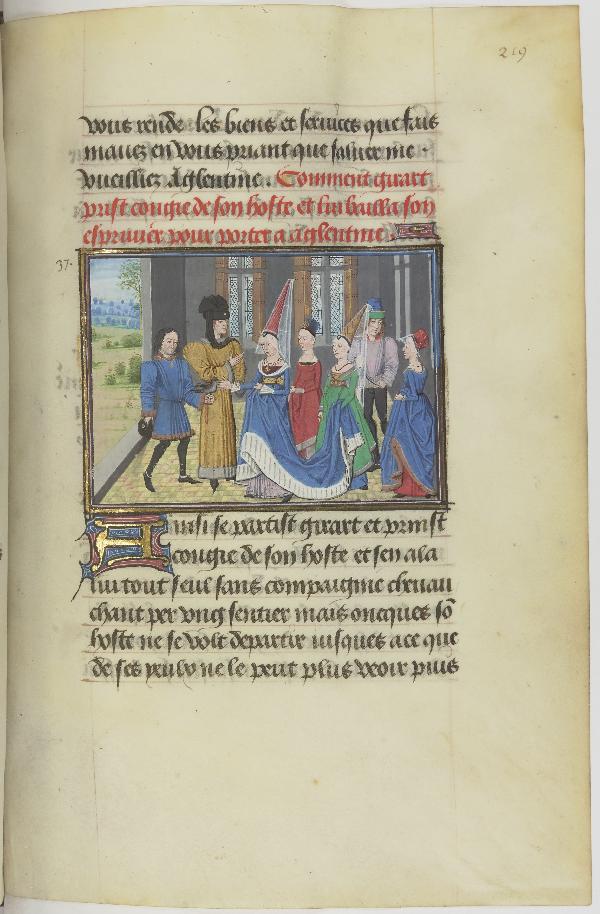 219
vous rende les biens et seruices que fais
mauez en vous priant que saluer me
vueilliez Aglentine. Comment girart
prist congie de son hoste et lui bailla son
espriuier pour porter a aglentine
37.
Ainsi se partist girart et prinst
congie de son hoste et sen ala
lui tout seul sans compaignie cheuau
chant per vng sentier mais oncques sõ
hoste ne se volt departir iusques ace que
de ses yeulx ne le peut plus veoir puis